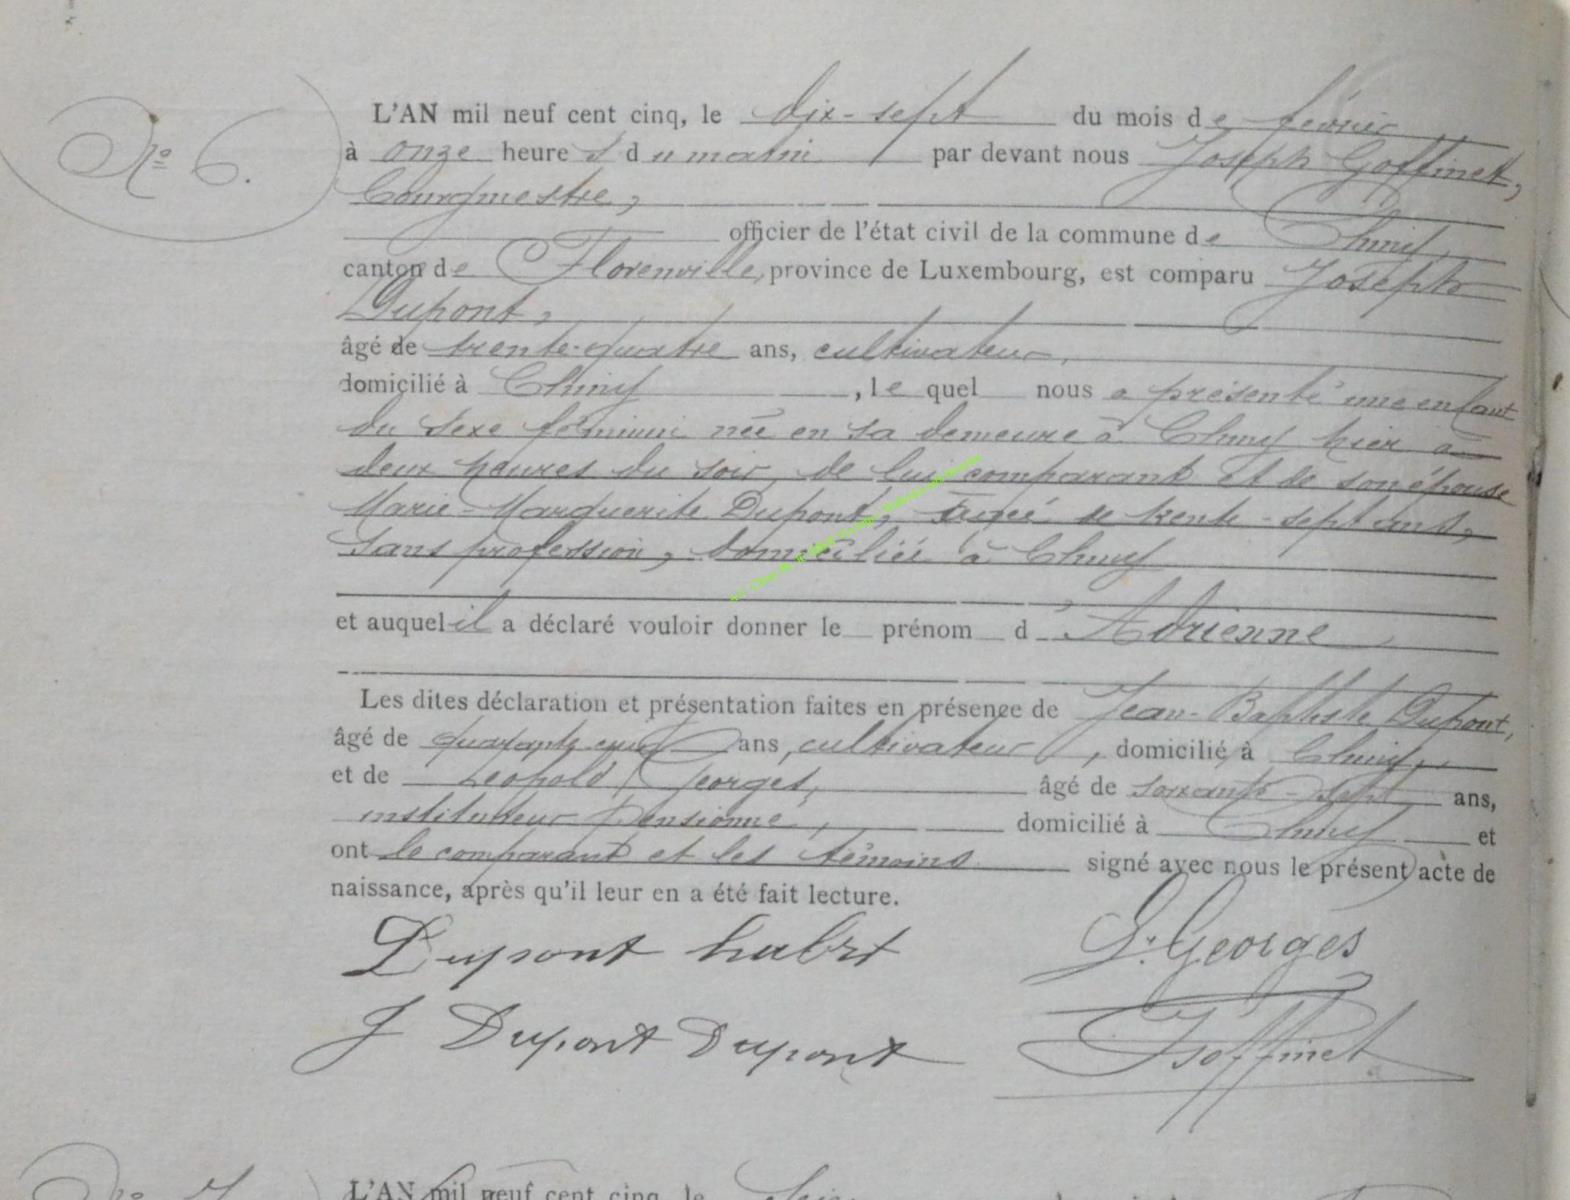 N° 6.
L'AN mil neuf cent cinq, le dix-sept du mois de février
à onze heures du matin par devant nous Joseph Goffinet,
bourgmestre,
officier de l'état civil de la commune de Chiny,
canton de Florenville, province de Luxembourg, est comparu Joseph
Dupont,
âgé de trente-quatre ans, cultivateur,
domicilié à Chiny, le quel nous a présenté une enfant
du sexe féminin née en sa demeure à Chiny hier à
deux heures du soir, de lui comparant et de son épouse
Marie-Marguerite Dupont, âgée de trente-sept ans,
sans profession, domiciliée à Chiny
et auquel il a déclaré vouloir donner le prénom d'Adrienne
Les dites déclaration et présentation faites en présence de Jean-Baptiste Dupont,
âgé de quarante ans, cultivateur, domicilié à Chiny,
et de Léopold Georges, âgé de soixante-sept ans,
instituteur pensionné, domicilié à Chiny et
ont le comparant et les témoins signé avec nous le présent acte de
naissance, après qu'il leur en a été fait lecture.
Dupont hubrt G. Georges
J Dupont Dupont J Goffinet
L'AN mil neuf cent cinq, le